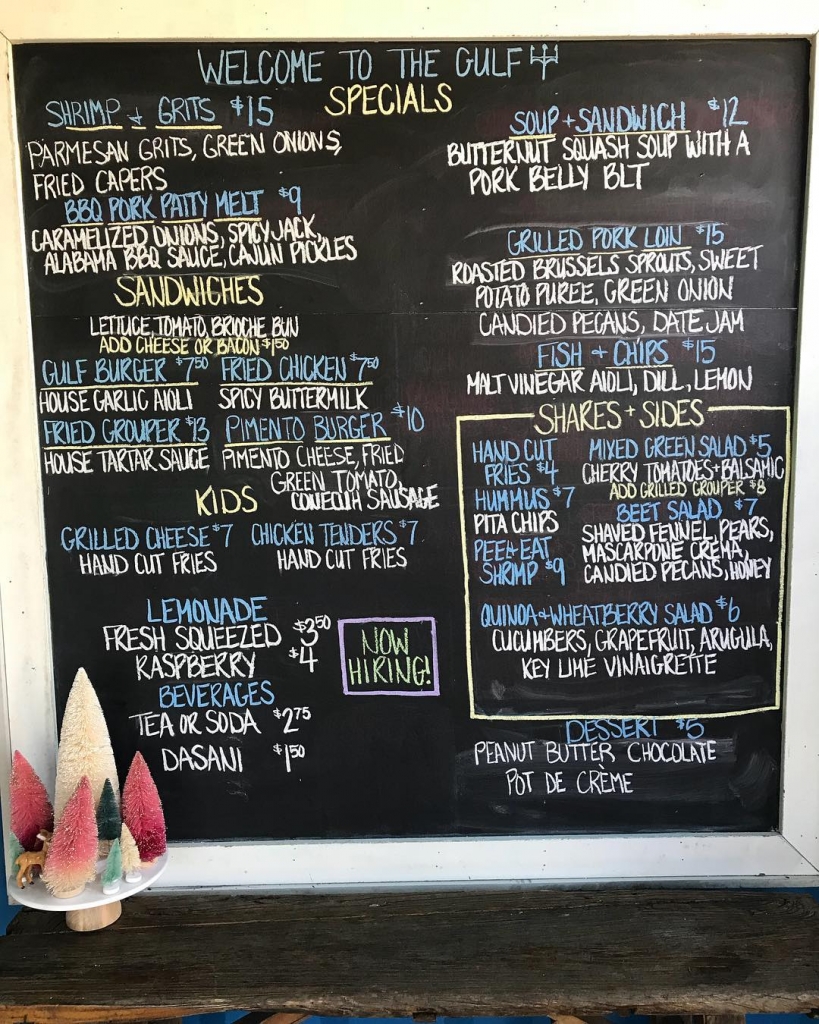 WELCOME TO THE GULF
SPECIALS
SHRIMP + GRITS $15
PARMESAN GRITS, GREEN ONIONS,
FRIED CAPERS
BBQ PORK PATTY MELT $9
CARAMELIZED ONIONS, SPICY JACK,
ALABAMA BBQ SAUCE, CAJUN PICKLES
SOUP + SANDWICH $12
BUTTERNUT SQUASH SOUP WITH A
PORK BELLY BLT
GRILLED PORK LOIN $15
ROASTED BRUSSELS SPROUTS, SWEET
POTATO PUREE, GREEN ONION
CANDIED PECANS, DATE JAM
FISH + CHIPS $15
MALT VINEGAR AIOLI, DILL, LEMON
SANDWICHES
LETTUCE, TOMATO, BRIOCHE BUN
ADD CHEESE OR BACON $1.50
GULF BURGER $7.50
HOUSE GARLIC AIOLI
FRIED CHICKEN $7.50
SPICY BUTTERMILK
FRIED GROUPER $13
HOUSE TARTAR SAUCE
PIMENTO BURGER $10
PIMENTO CHEESE, FRIED
GREEN TOMATO,
CONECUH SAUSAGE
KIDS
GRILLED CHEESE $7
HAND CUT FRIES
CHICKEN TENDERS $7
HAND CUT FRIES
LEMONADE
FRESH SQUEEZED $3.50
RASPBERRY $4
BEVERAGES
TEA OR SODA $2.75
DASANI $1.50
NOW
HIRING!
SHARES + SIDES
HAND CUT
FRIES $4
HUMMUS $7
PITA CHIPS
PEEL+EAT
SHRIMP $9
MIXED GREEN SALAD $5
CHERRY TOMATOES + BALSAMIC
ADD GRILLED GROUPER $8
BEET SALAD $7
SHAVED FENNEL, PEARS,
MASCARPONE CREMA,
CANDIED PECANS, HONEY
QUINOA + WHEATBERRY SALAD $6
CUCUMBERS, GRAPEFRUIT, ARUGULA,
KEY LIME VINAIGRETTE
DESSERT $5
PEANUT BUTTER CHOCOLATE
POT DE CRÈME